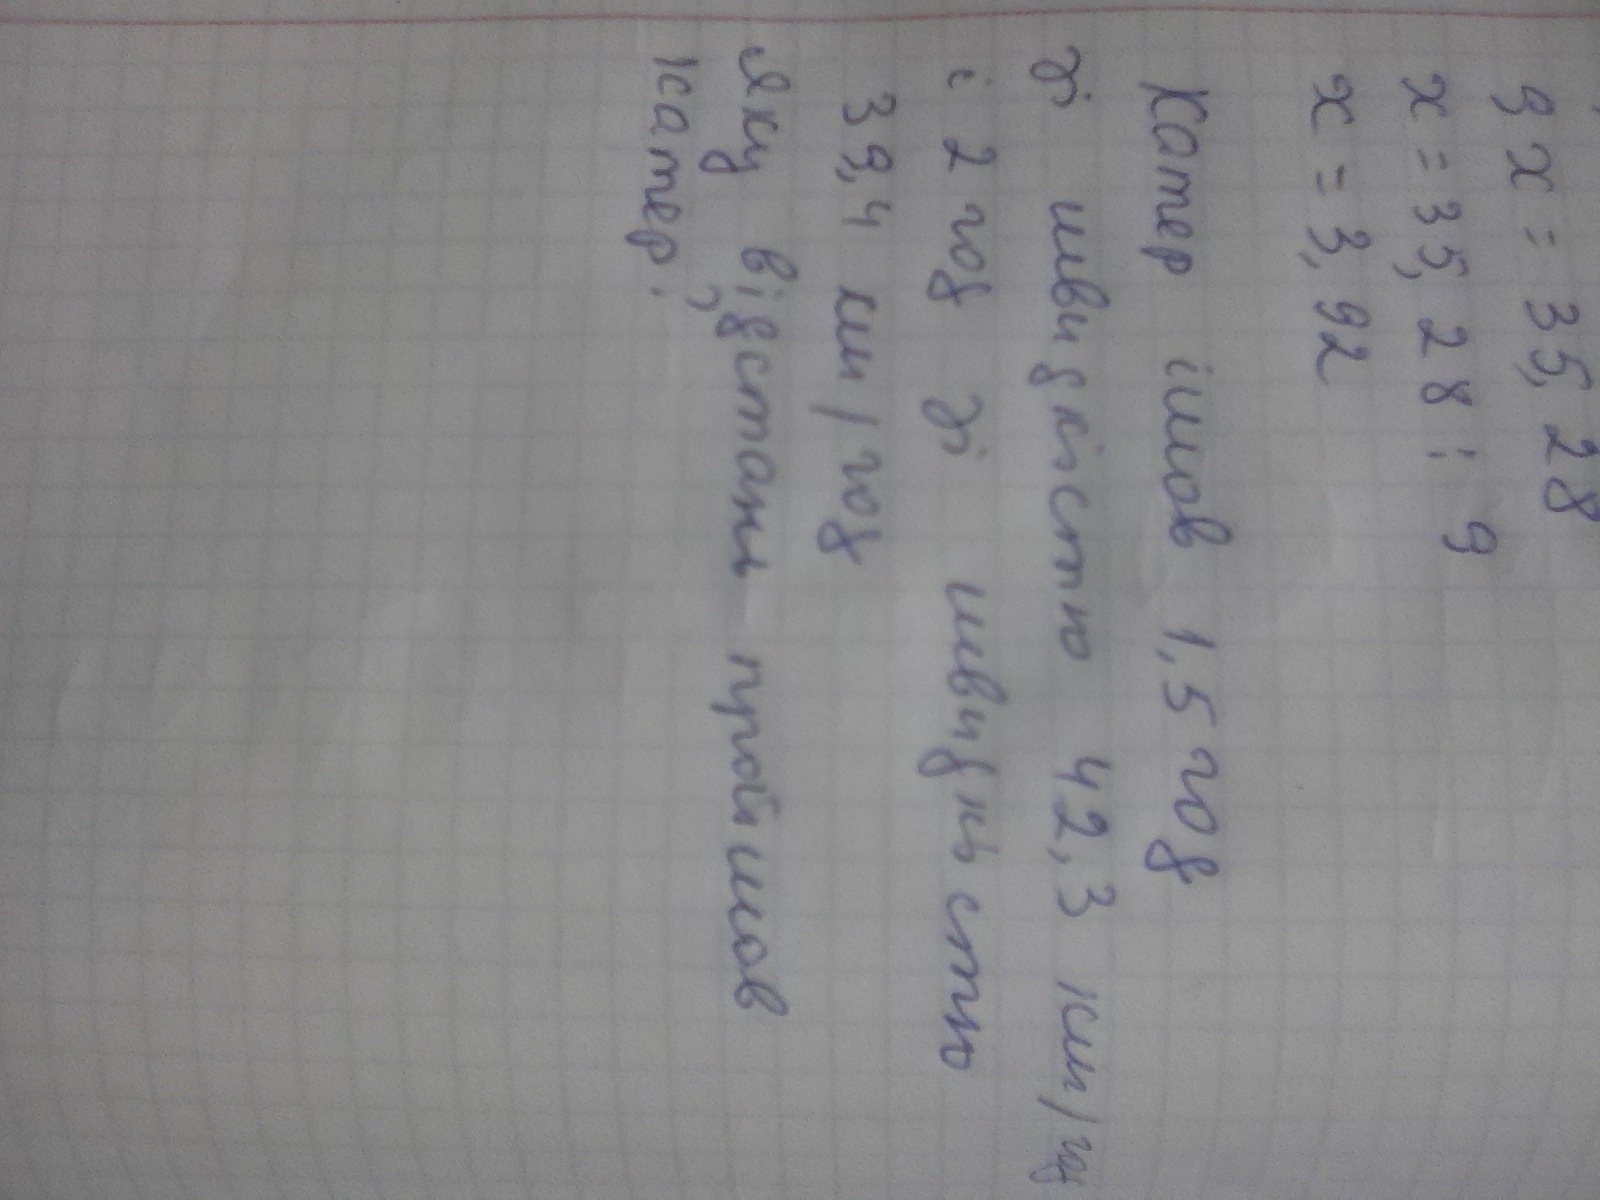 9x = 35,28
x = 35,28 : 9
x = 3,92
Катер ішов 1,5 год
зі швидкістю 42,3 км/год
і 2 год зі швидкістю
39,4 км/год
Яку відстань пройшов
катер?